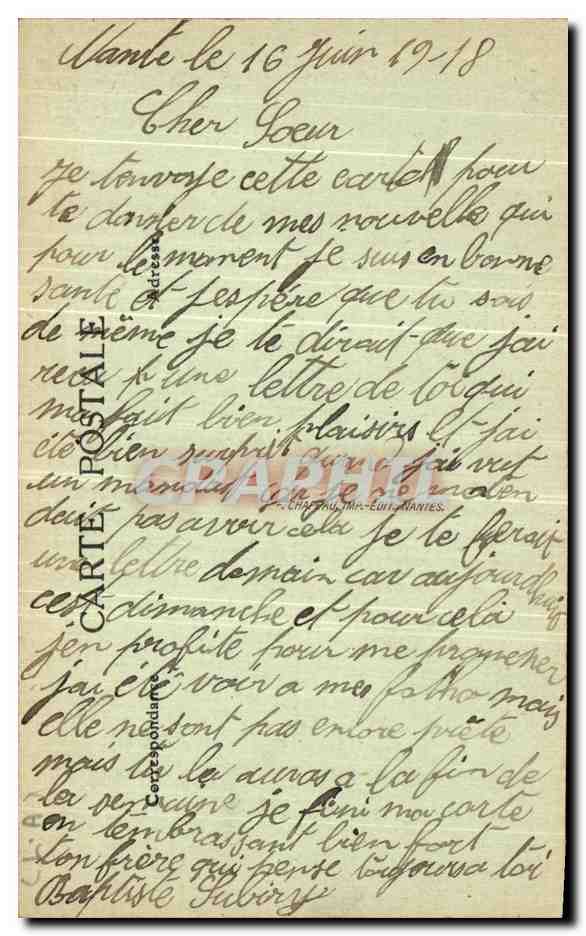 Nante le 16 Juin 19-18
Cher Soeur
Je tenvoye cette carte pour
te donner de mes nouvelle qui
pour le moment je suis en bonne
santé et jespére que tu sois
de même je te dirait que j'ai
reçu une lettre de toi qui
ma fait bien plaisirs et j'ai
été bien surprit quan j'ai vut
un mandat car je ne maten
dait pas avoir cela je te ferait
une lettre demain car aujourdhuis
cest dimanche et pour cela
j'en profite pour me promener
j'ai été voir a mes fotho mais
elle ne sont pas encore prête
mais tu la auras a la fin de
la semaine je fini ma carte
en tembrassant bien fort
ton frère qui pense toujours a toi
Baptiste Subiry
CARTE POSTALE
Correspondance
Adresse
CHAPEAU, IMP.-EDIT., NANTES.
CPAPHIL